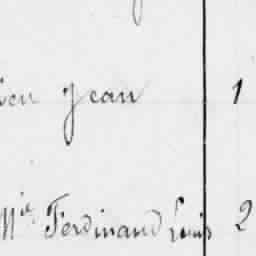 Jean 1
Mie Ferdinand Louis 2